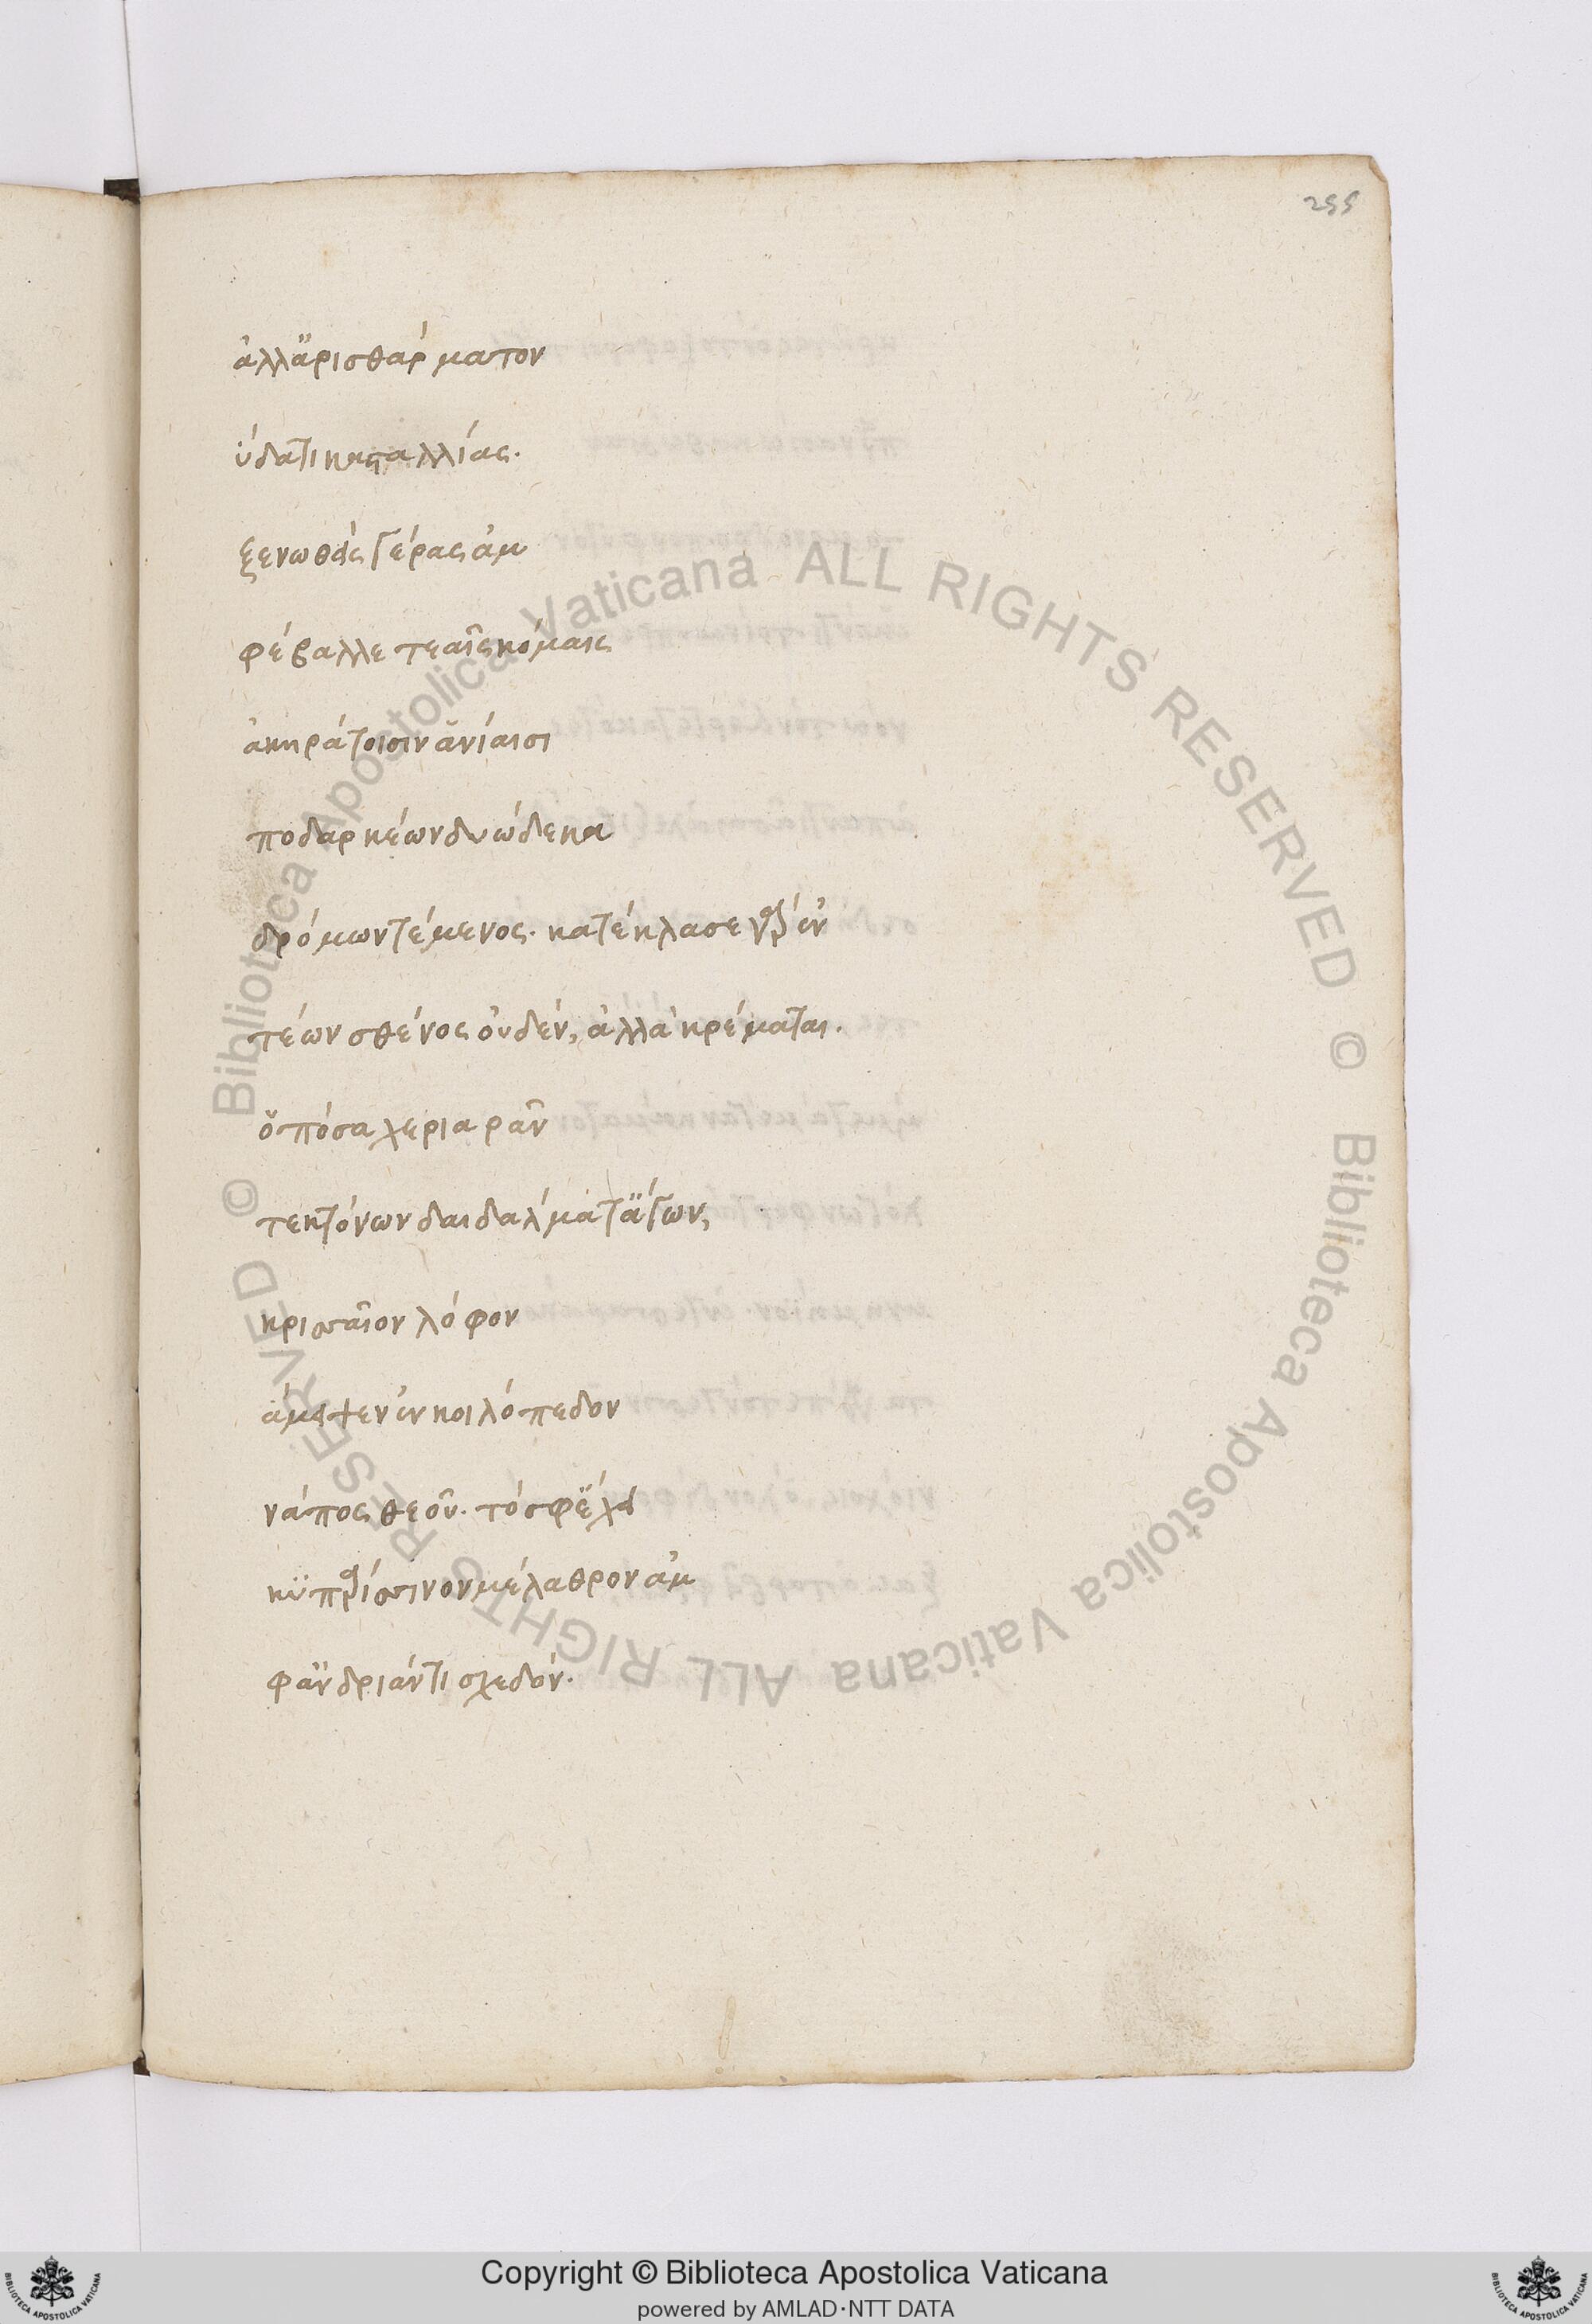 255
ἀλλ' ἀρισθάρματον
ὕδατι κασταλλίας.
ξενωθεὶς γέρας ἀμ
φέβαλλε τεαῖς κόμαις
ἀκηράτοισιν ἀνίαισι
ποδαρκέων δυώδεκα
δρόμων τέμενος. κατέκλασε γὰρ ἐν
τέων σθένος οὐδέν, ἀλλὰ κρέμαται.
ὁπόσα χεριαρᾶν
τεκτόνων δαιδάλματ' ἄγων,
κρισαῖον λόφον
ἄμειψεν ἐν κοιλόπεδον
νάπος θεοῦ. τό σφ' ἔχει
κυπαρίσσινον μέλαθρον ἀμ
φ' ἀνδριάντι σχεδόν.
© Biblioteca Apostolica Vaticana ALL RIGHTS RESERVED © Biblioteca Apostolica Vaticana ALL RIGHTS RESERVED
Copyright © Biblioteca Apostolica Vaticana
powered by AMLAD·NTT DATA
BIBLIOTECA APOSTOLICA VATICANA
BIBLIOTECA APOSTOLICA VATICANA